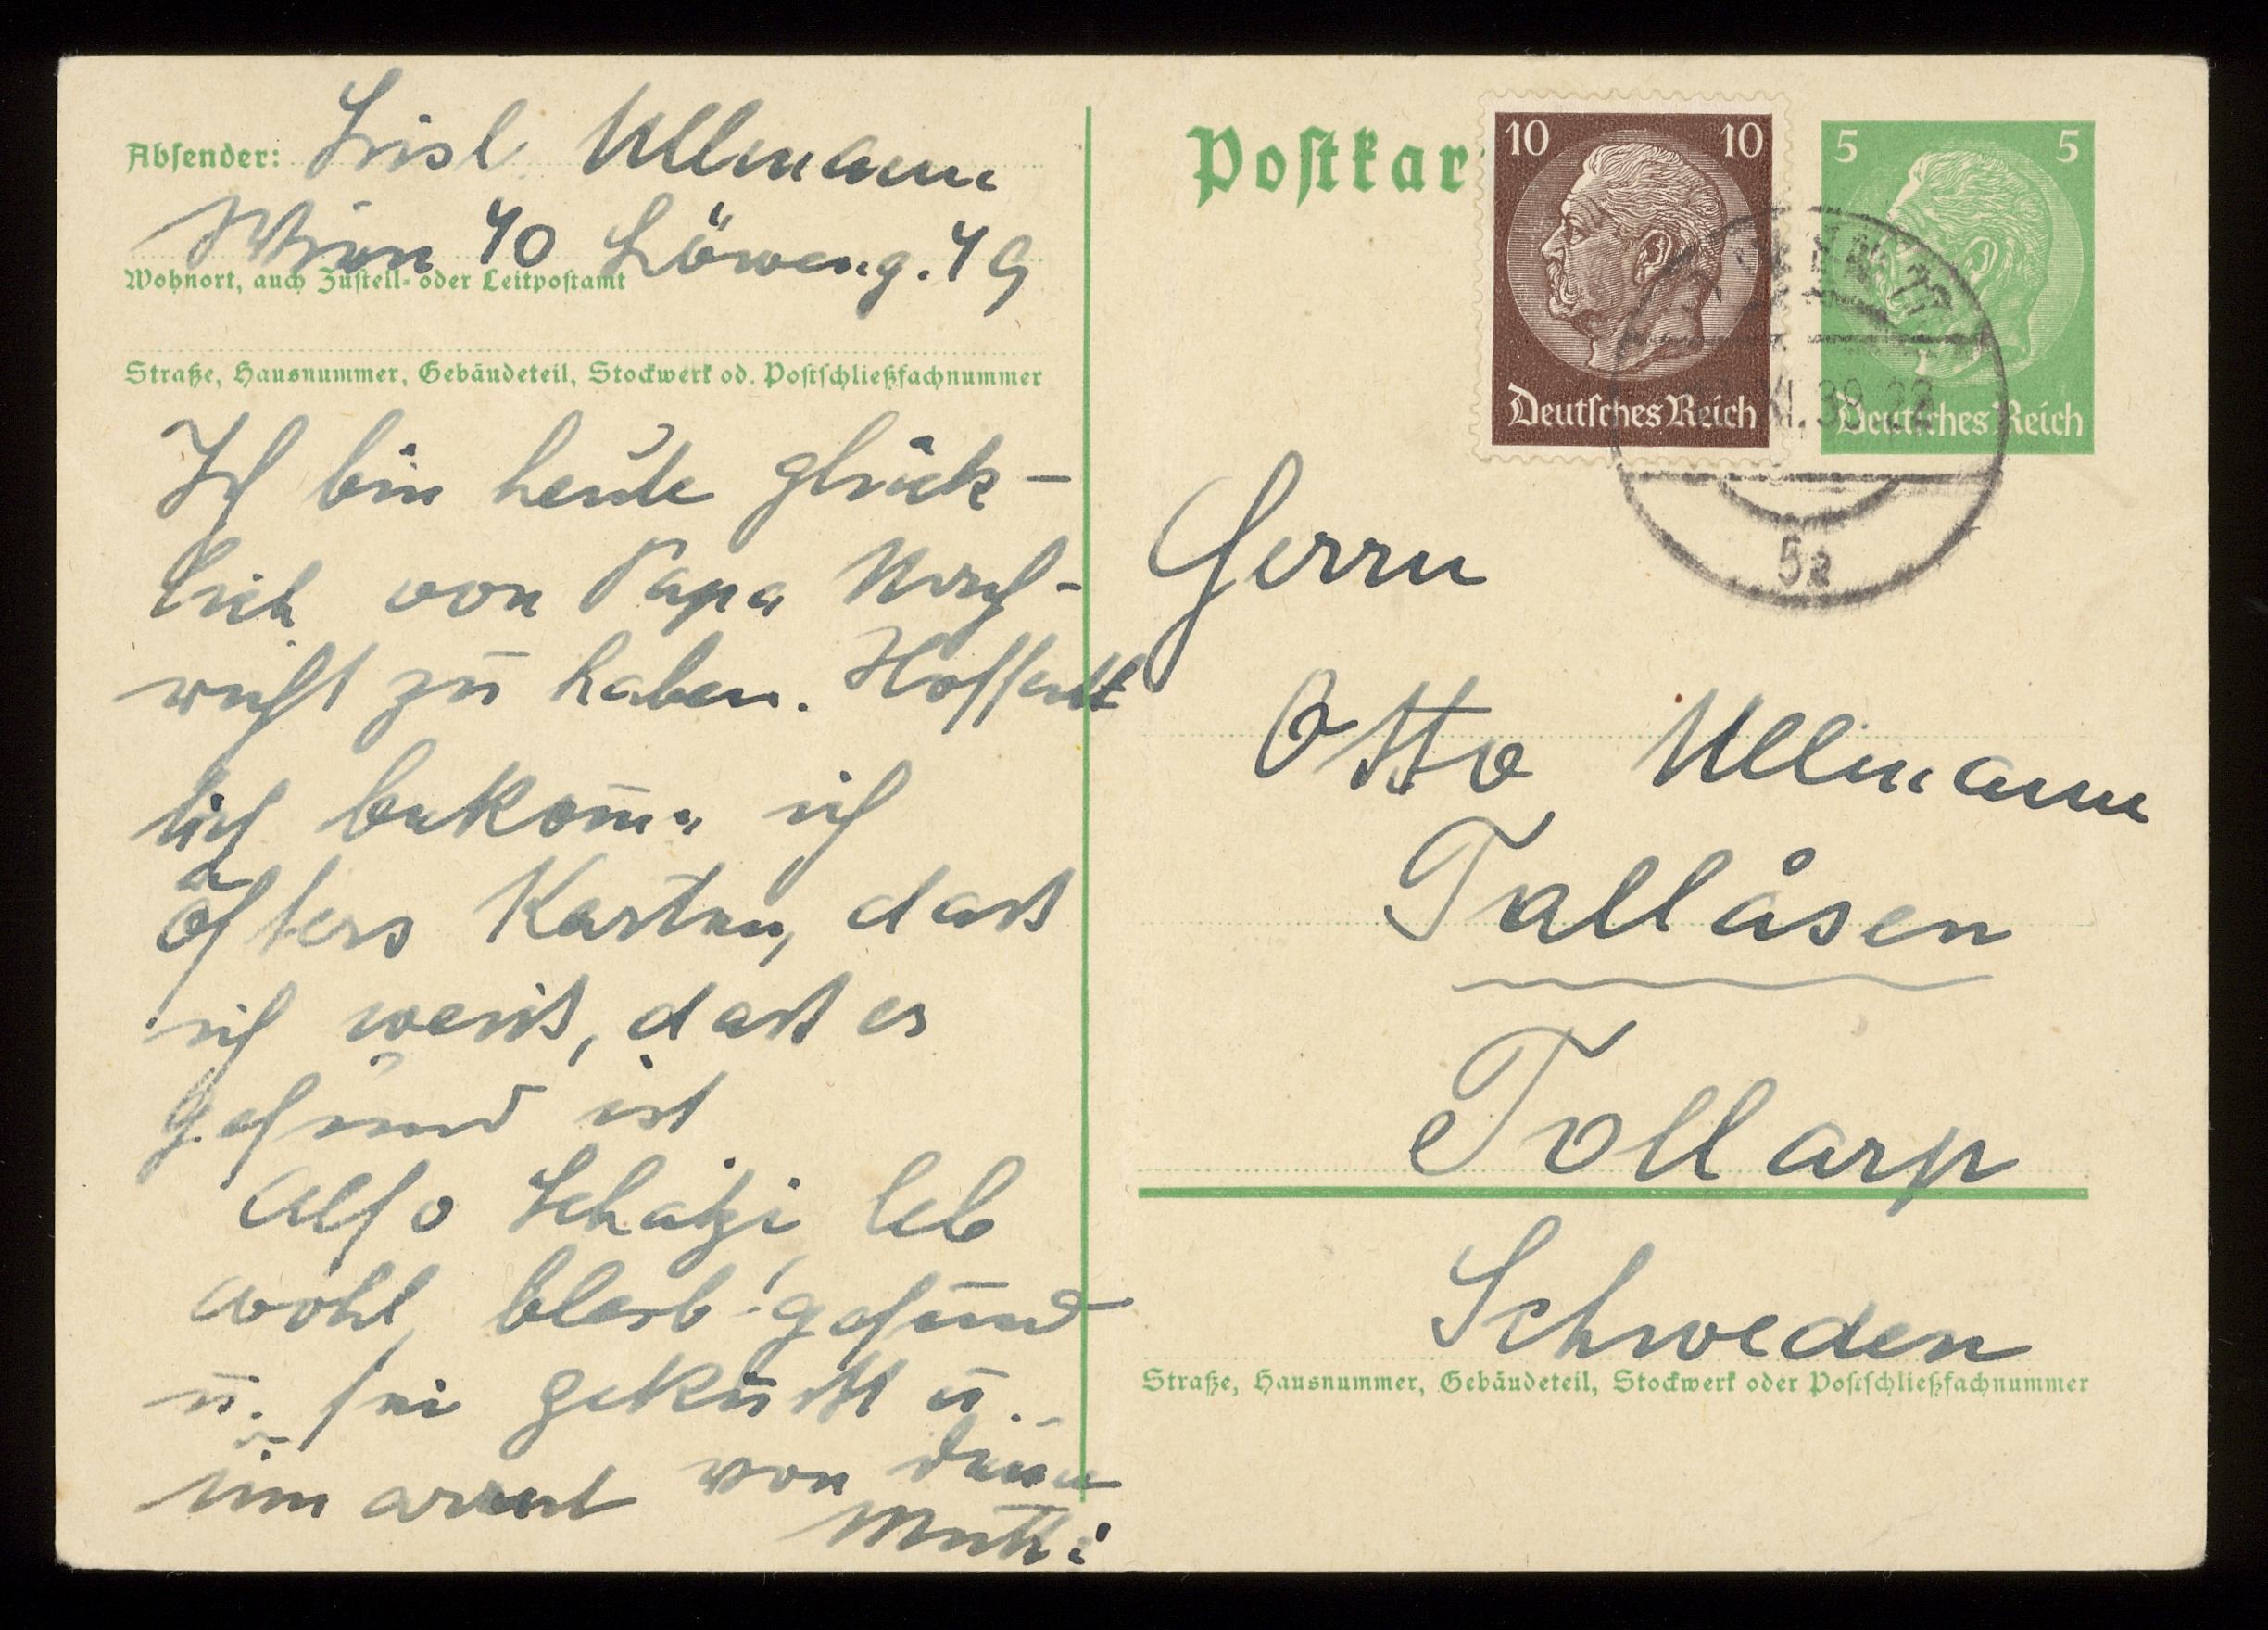 Absender: Lisl Ullmann
Wien 40 Löweng. 49
Wohnort, auch Zustell- oder Leitpostamt
Straße, Hausnummer, Gebäudeteil, Stockwerk od. Postschließfachnummer
Ich bin heute glück-
lich von Papa Nach-
richt zu haben. Hoffent
lich bekomme ich
öfters Karten, dass
ich weiss, dass er
gesund ist
Also Schatzi, leb
wohl, bleib gesund
u. sei geküsst u.
umarmt von deiner
Mutti
Postkar
10 10
Deutsches Reich
5 5
Deutsches Reich
WIEN
XI. 39 22
5a
Herrn
Otto Ullmann
Tallåsen
Tollarp
Schweden
Straße, Hausnummer, Gebäudeteil, Stockwerk oder Postschließfachnummer